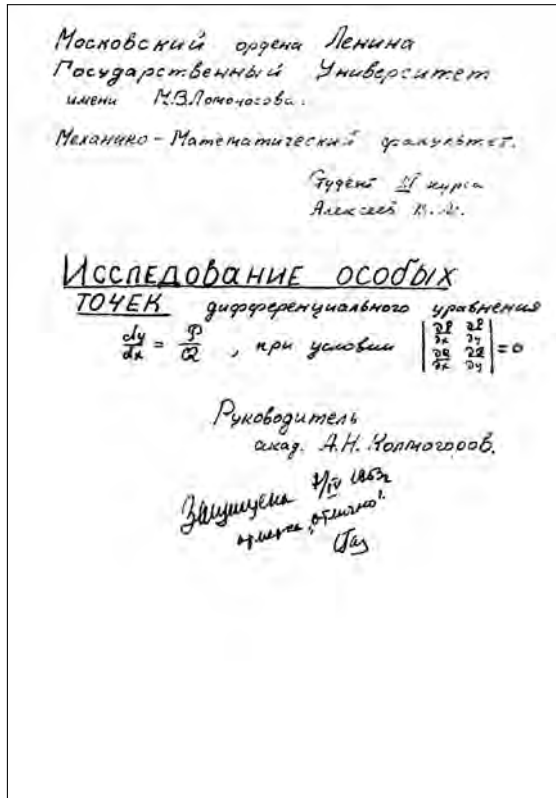 Московский ордена Ленина
Государственный Университет
имени М.В.Ломоносова.
Механико-Математический факультет.
Студент курса
Алексеев В.М.
Исследование особых
точек дифференциального уравнения
dy/dx = P/Q , при условии |∂P/∂x ∂P/∂y; ∂Q/∂x ∂Q/∂y| = 0
Руководитель
акад. А.Н. Колмогоров.
Защищена /IV 1953г
"отлично".